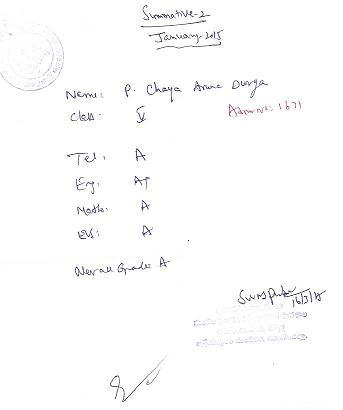 Summative-2
January-2015
Name: P. Chaya Anna Durga
Class: V
Admn no: 1671
Tel. A
Eng: A+
Maths: A
EVS: A
Overall Grade A
16/3/15